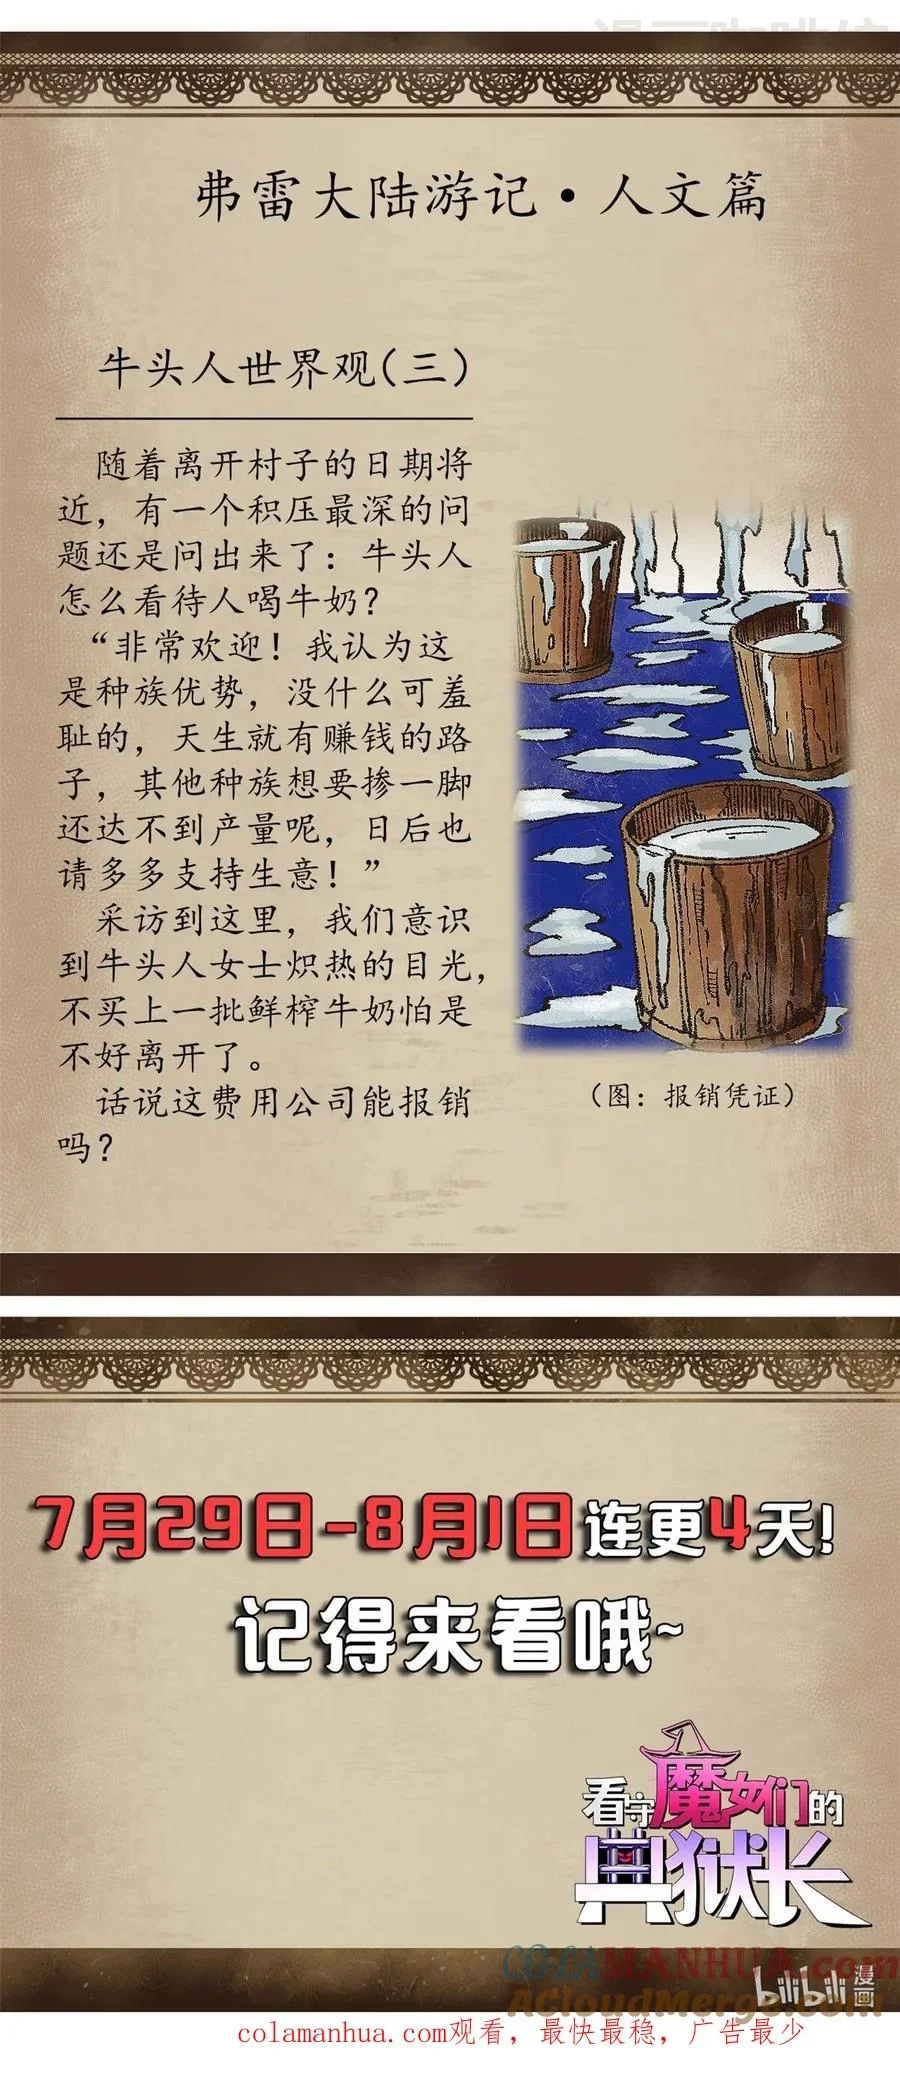 漫画咖啡馆
弗雷大陆游记·人文篇
牛头人世界观(三)
随着离开村子的日期将
近，有一个积压最深的问
题还是问出来了：牛头人
怎么看待人喝牛奶？
“非常欢迎！我认为这
是种族优势，没什么可羞
耻的，天生就有赚钱的路
子，其他种族想要掺一脚
还达不到产量呢，日后也
请多多支持生意！”
采访到这里，我们意识
到牛头人女士炽热的目光，
不买上一批鲜榨牛奶怕是
不好离开了。
话说这费用公司能报销
吗？
（图：报销凭证）
7月29日-8月1日连更4天!
记得来看哦~
看守魔女们的
典狱长
COLAMANHUA.com
ACloudMerge.com
bilibili 漫画
colamanhua.com观看，最快最稳，广告最少